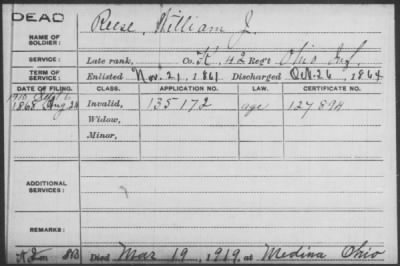 DEAD
NAME OF SOLDIER: Reese, William J.
SERVICE: Late rank, Co. K, 42 Reg't Ohio Inf.
TERM OF SERVICE: Enlisted Nov. 21, 1861. Discharged Oct. 26, 1864
DATE OF FILING. CLASS. APPLICATION NO. LAW. CERTIFICATE NO.
1868 Aug 24 Invalid, 135172 age 127894
Widow,
Minor,
ADDITIONAL SERVICES:
REMARKS:
Died Mar 19, 1919, at Medina Ohio